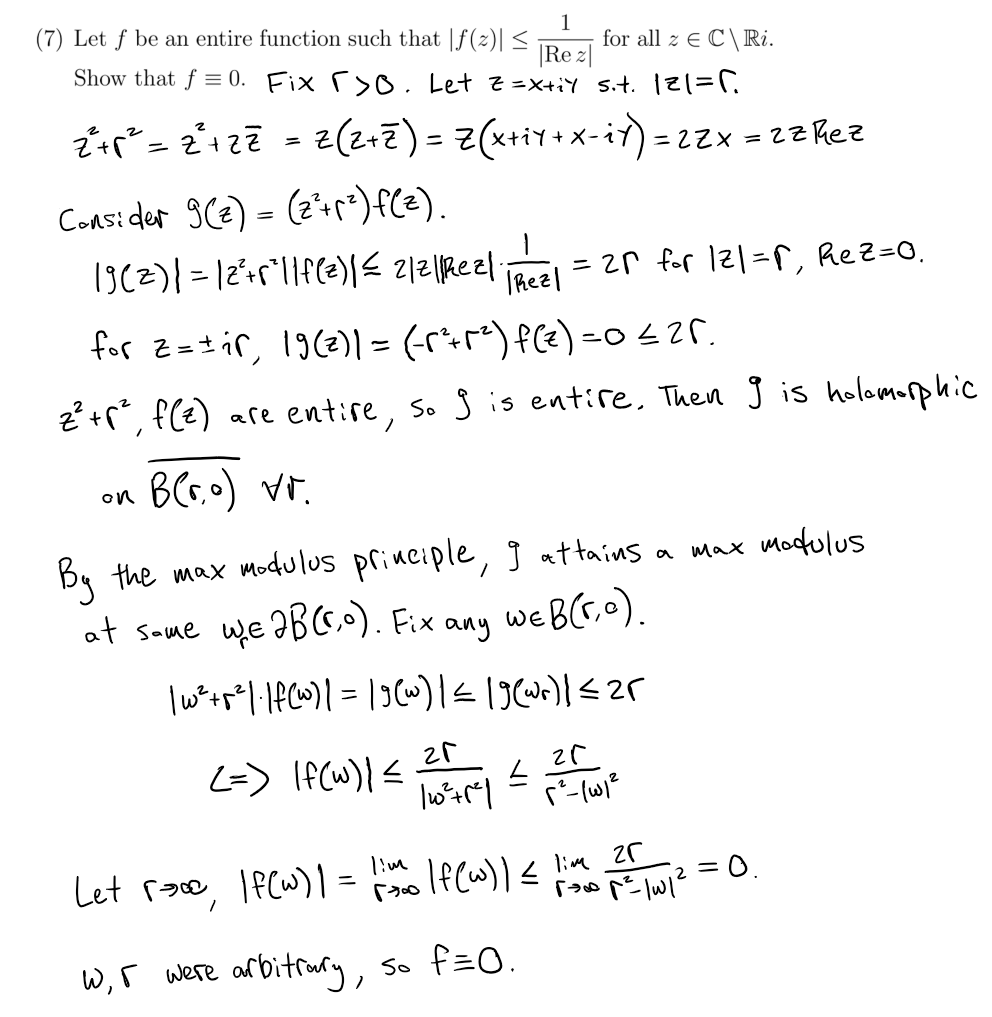 (7) Let f be an entire function such that |f(z)| ≤ 1/|Re z| for all z ∈ ℂ \ ℝi.
Show that f ≡ 0. Fix r>0. Let z=x+iy s.t. |z|=r.
z²+r² = z²+zz̅ = z(z+z̅) = z(x+iy+x-iy) = 2zx = 2z Re z
Consider g(z) = (z²+r²)f(z).
|g(z)| = |z²+r²||f(z)| ≤ 2|z||Re z|·1/|Re z| = 2r for |z|=r, Re z=0.
for z=±ir, |g(z)| = (-r²+r²)f(z)=0 ≤ 2r.
z²+r², f(z) are entire, so g is entire. Then g is holomorphic
on B(r,0)‾ ∀r.
By the max modulus principle, g attains a max modulus
at some wᵣ∈∂B(r,0). Fix any w∈B(r,0).
|w²+r²|·|f(w)| = |g(w)| ≤ |g(wᵣ)| ≤ 2r
<=> |f(w)| ≤ 2r/|w²+r²| ≤ 2r/(r²-|w|²)
Let r→∞, |f(w)| = lim r→∞ |f(w)| ≤ lim r→∞ 2r/(r²-|w|²) = 0.
w, r were arbitrary, so f≡0.